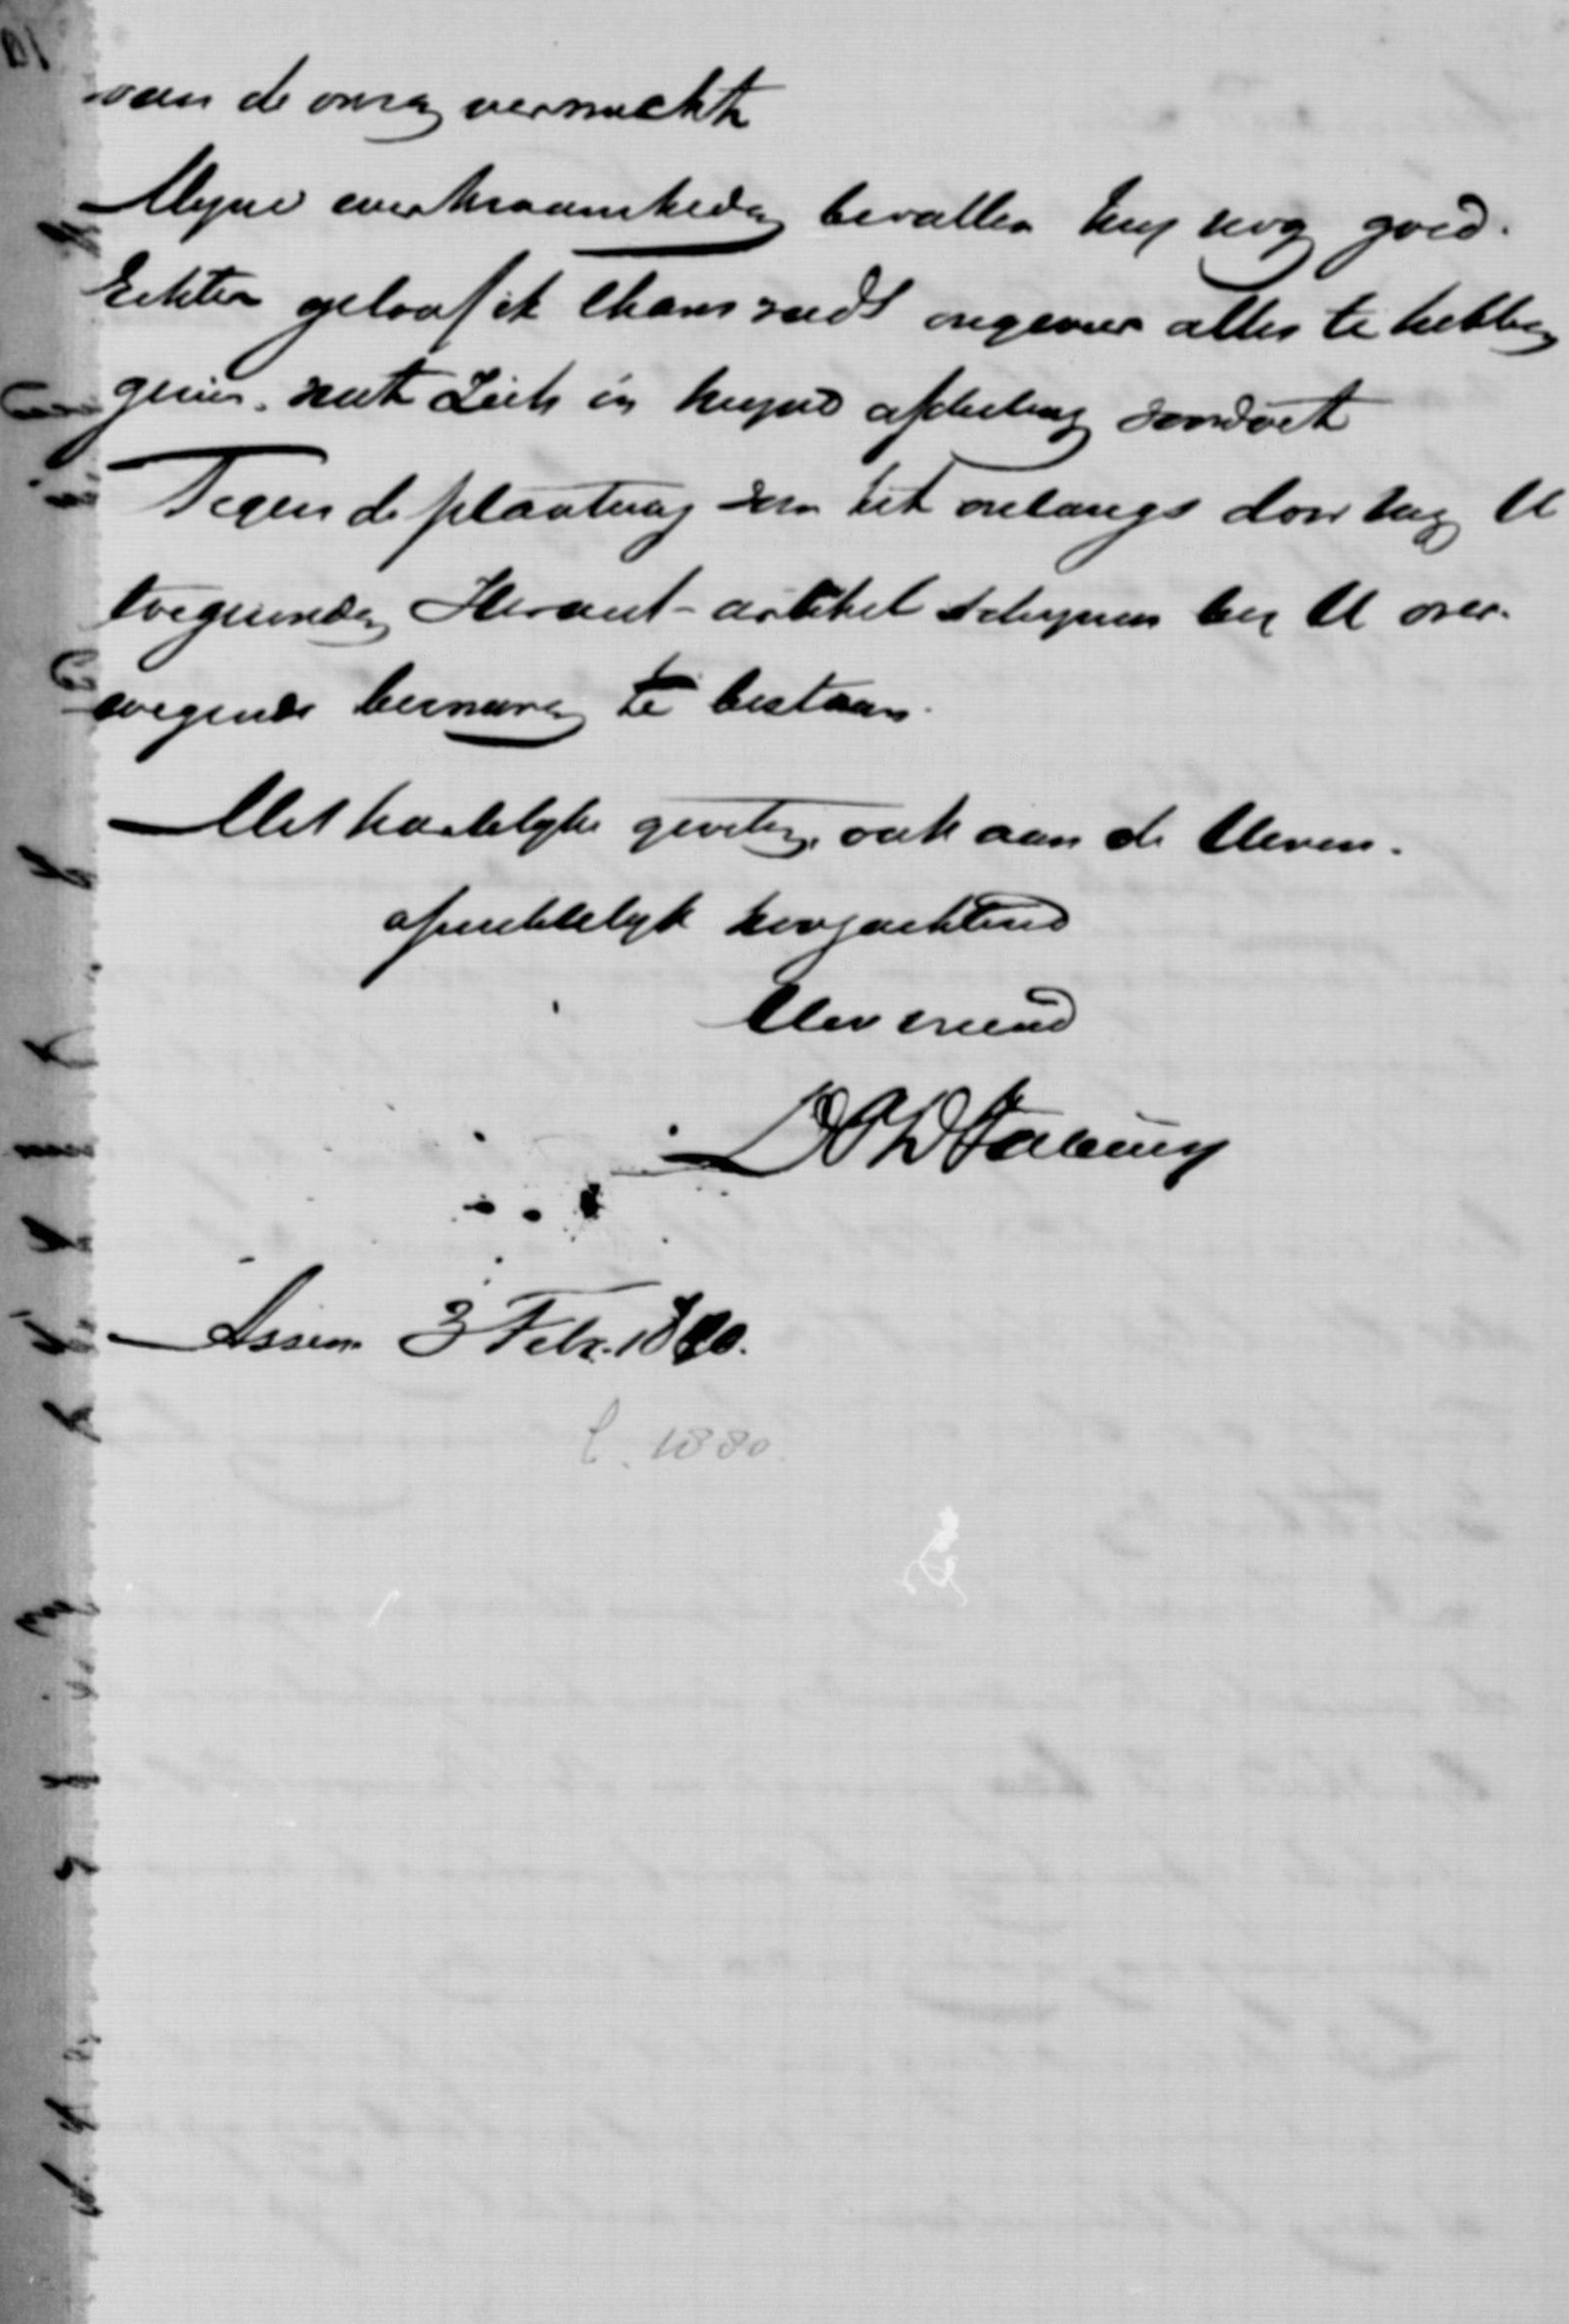 van de onzen vermeldde
Mijne werkzaamheden bevallen mij nog goed.
Echter geloof ik thans reeds ongeveer alles te hebben
gezien, wat zich in mijne afdeeling voordoet
Tegen de plaatsing van het onlangs door mij U
toegezonden Heraut-artikel schijnen bij U over-
wegende bezwaren te bestaan.
Met hartelijke groeten, ook aan de Uwen.
opregtelijk hoogachtend
Uw vriend
Assen 3 Febr. 1880.
1880